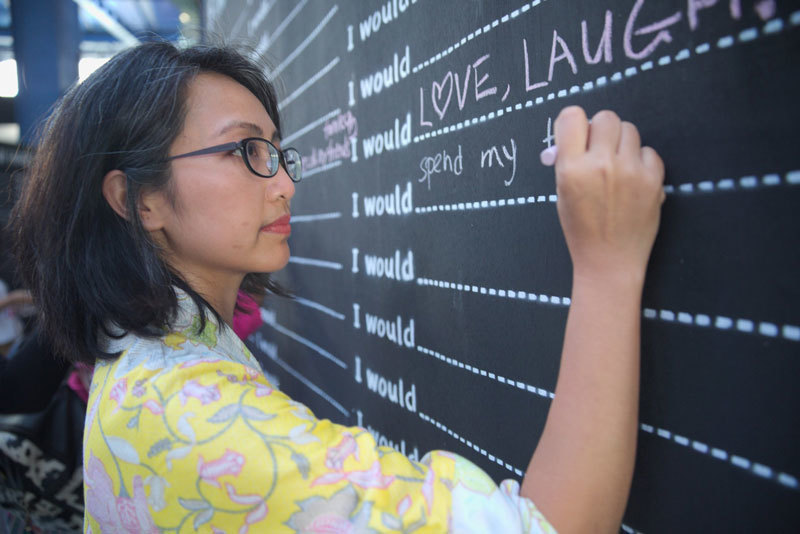 I would
I would LOVE, LAUGH
I would spend my t
I would
I would
I would
I would
I would